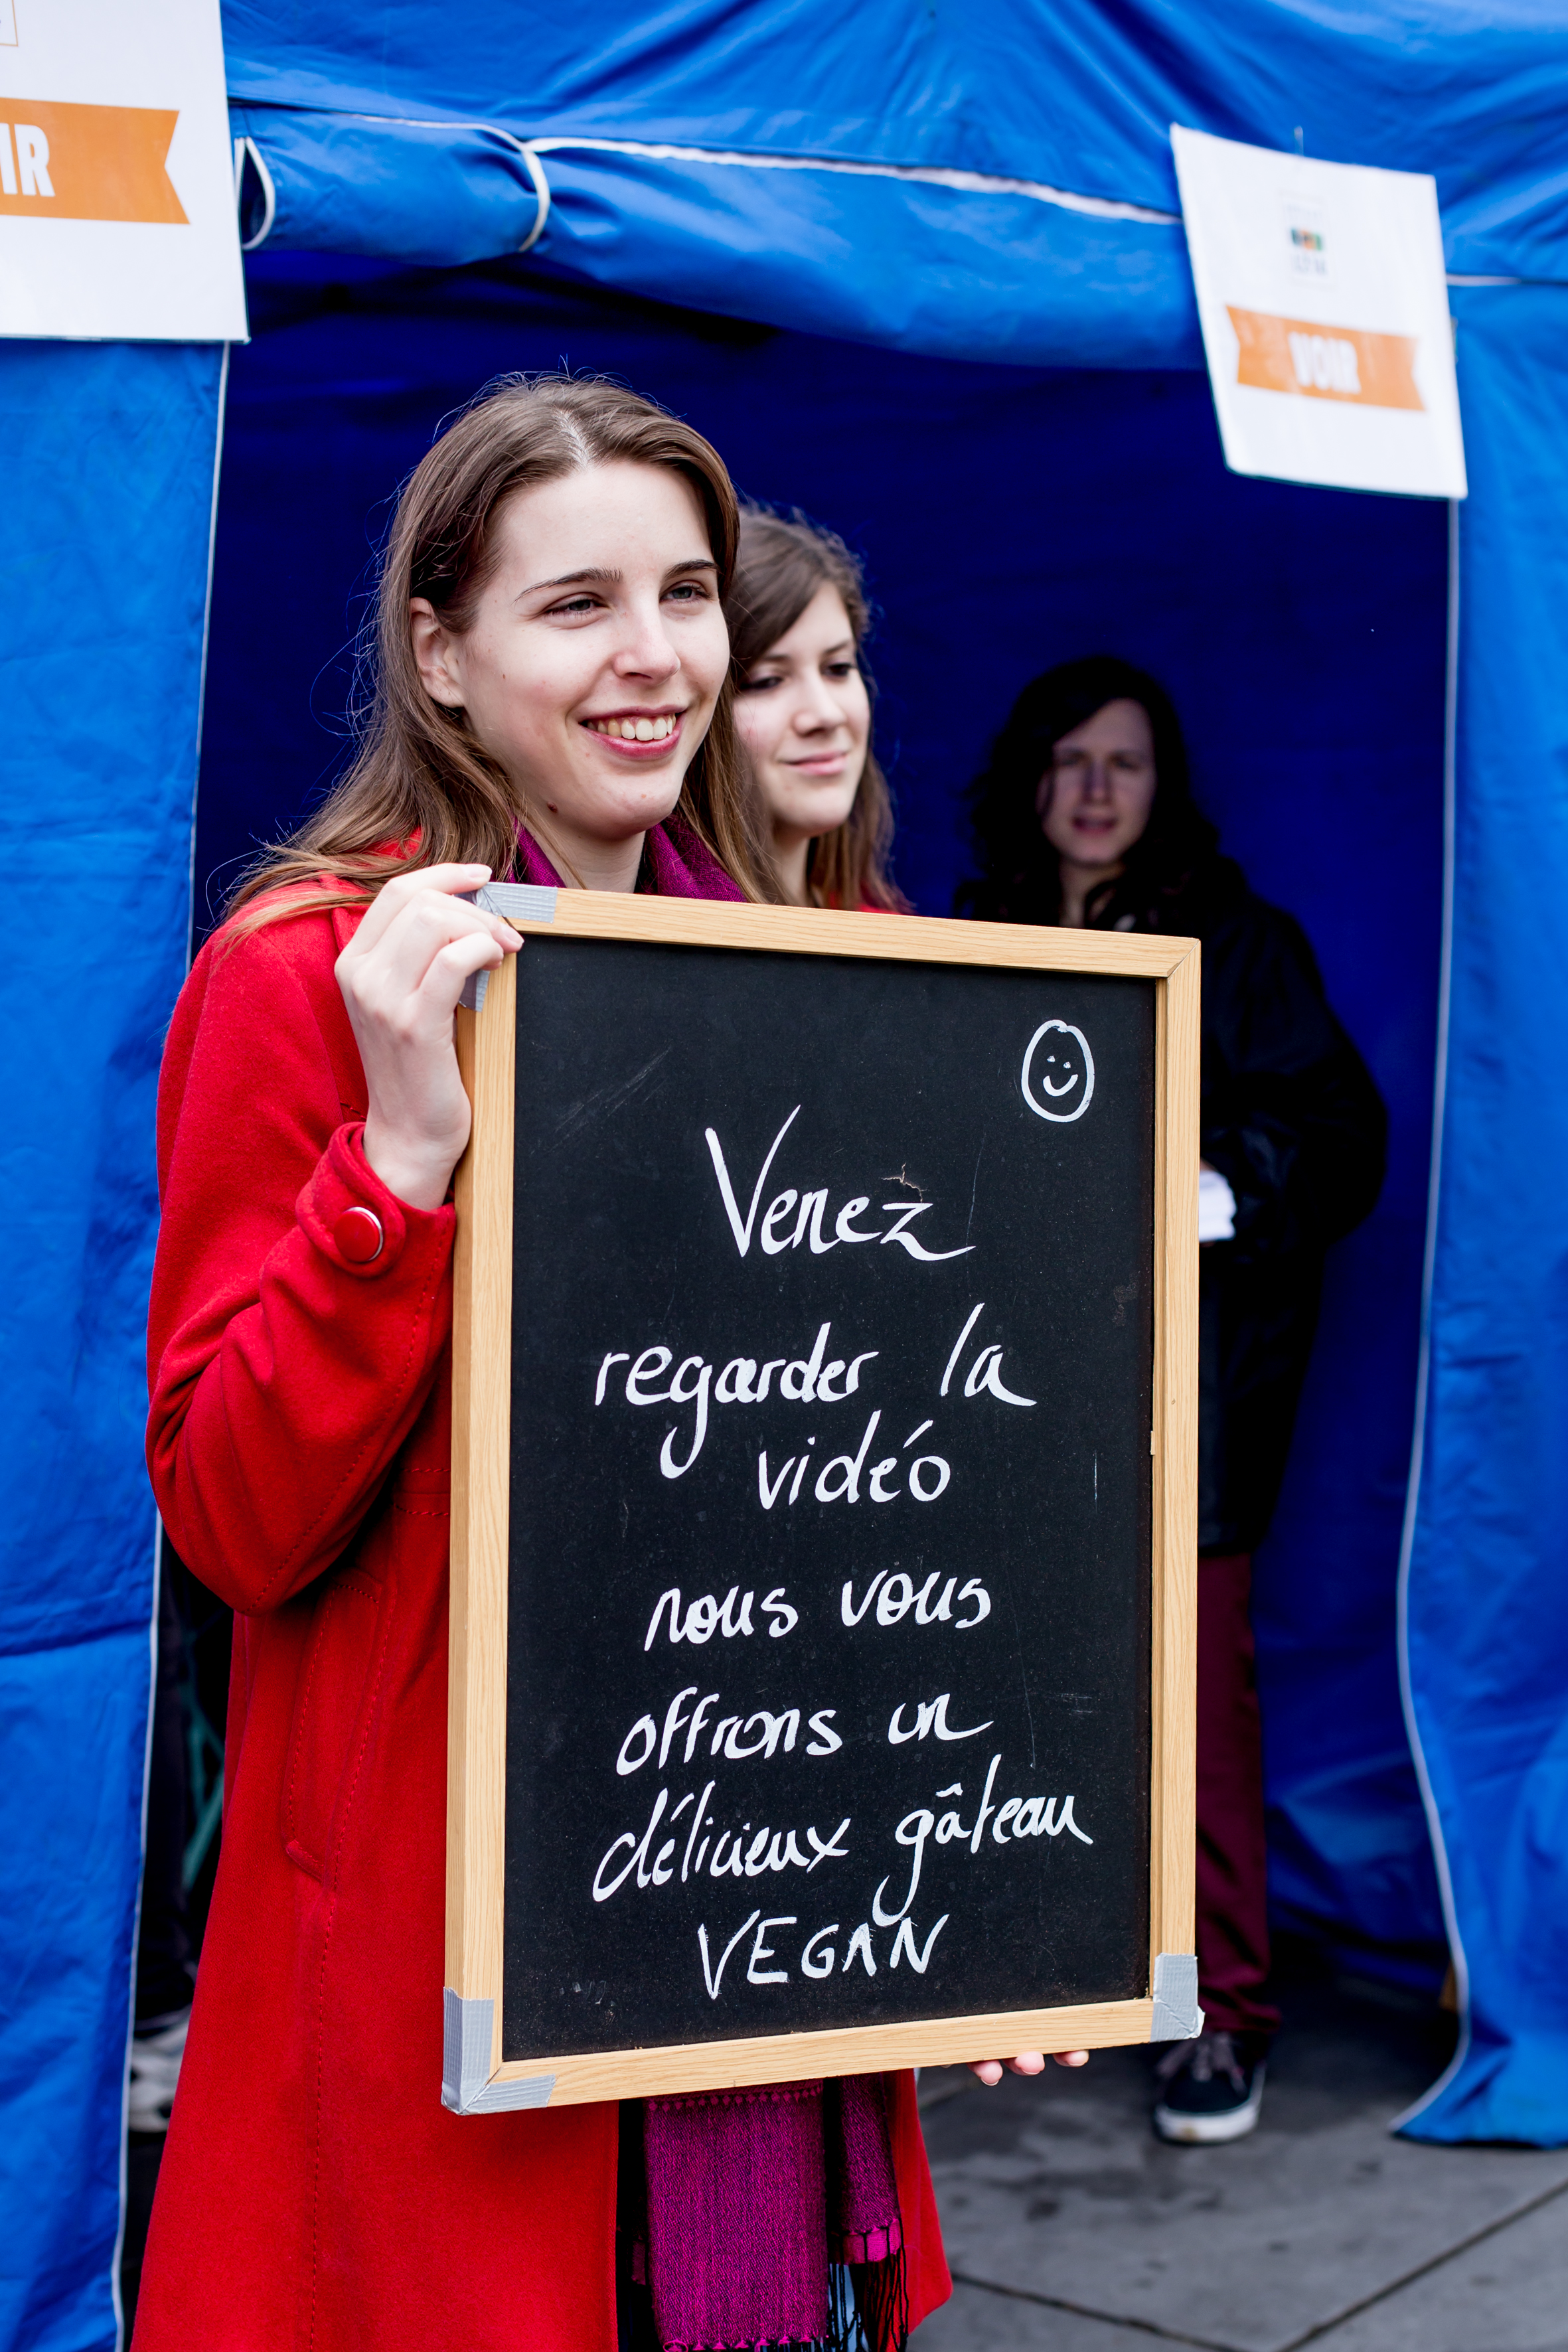 IR
VOIR
Venez
regarder la
vidéo
nous vous
offrons un
délicieux gâteau
VEGAN